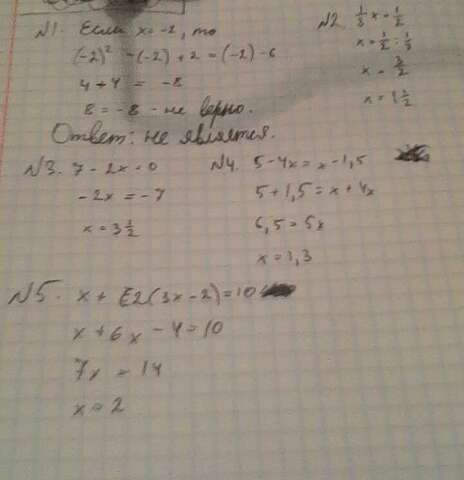 №1. Если x = -2, то
(-2)² - (-2) + 2 = (-2) - 6
4 + 4 = -8
8 = -8 - не верно.
Ответ: не является.
№2. 1/3 x = 1/2
x = 1/2 : 1/3
x = 3/2
x = 1 1/2
№3. 7 - 2x = 0
-2x = -7
x = 3 1/2
№4. 5 - 4x = x - 1,5
5 + 1,5 = x + 4x
6,5 = 5x
x = 1,3
№5. x + 2(3x - 2) = 10
x + 6x - 4 = 10
7x = 14
x = 2